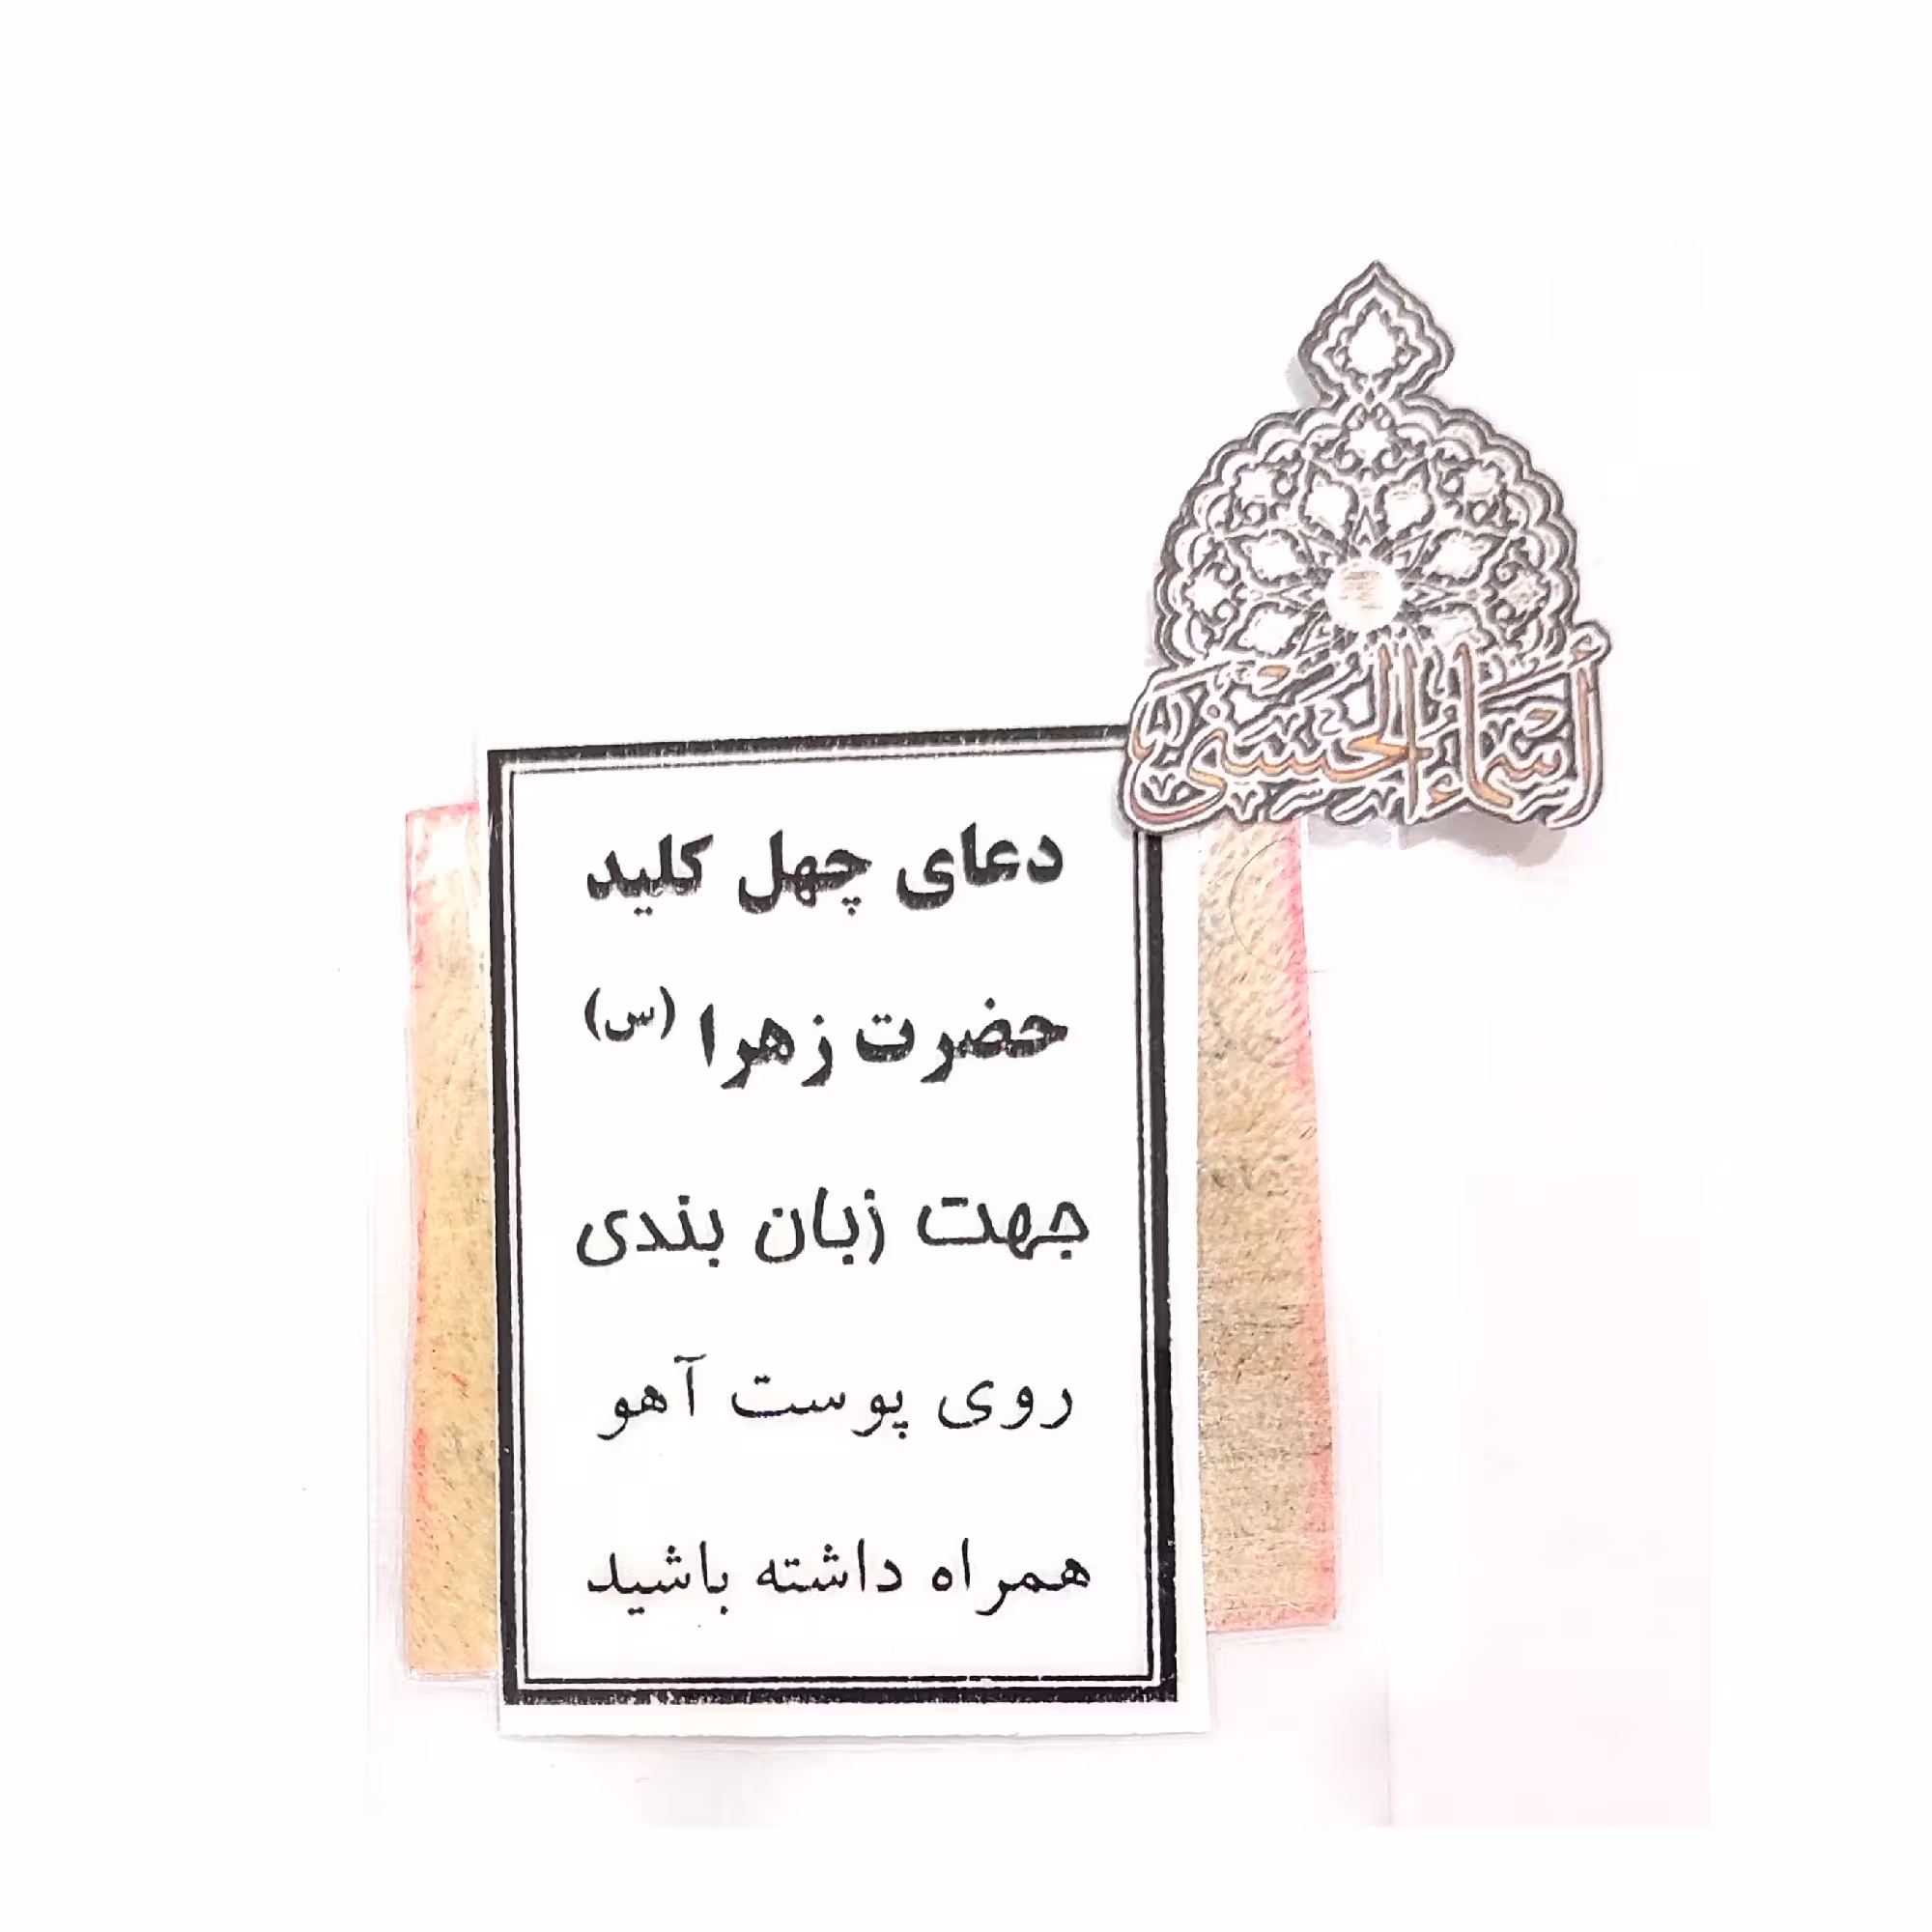 أسماء الحسنى
دعای چهل کلید
حضرت زهرا (س)
جهت زبان بندی
روی پوست آهو
همراه داشته باشید